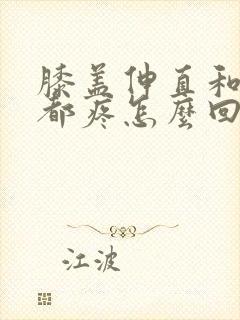 膝盖伸直和
都疼怎麼回
江波